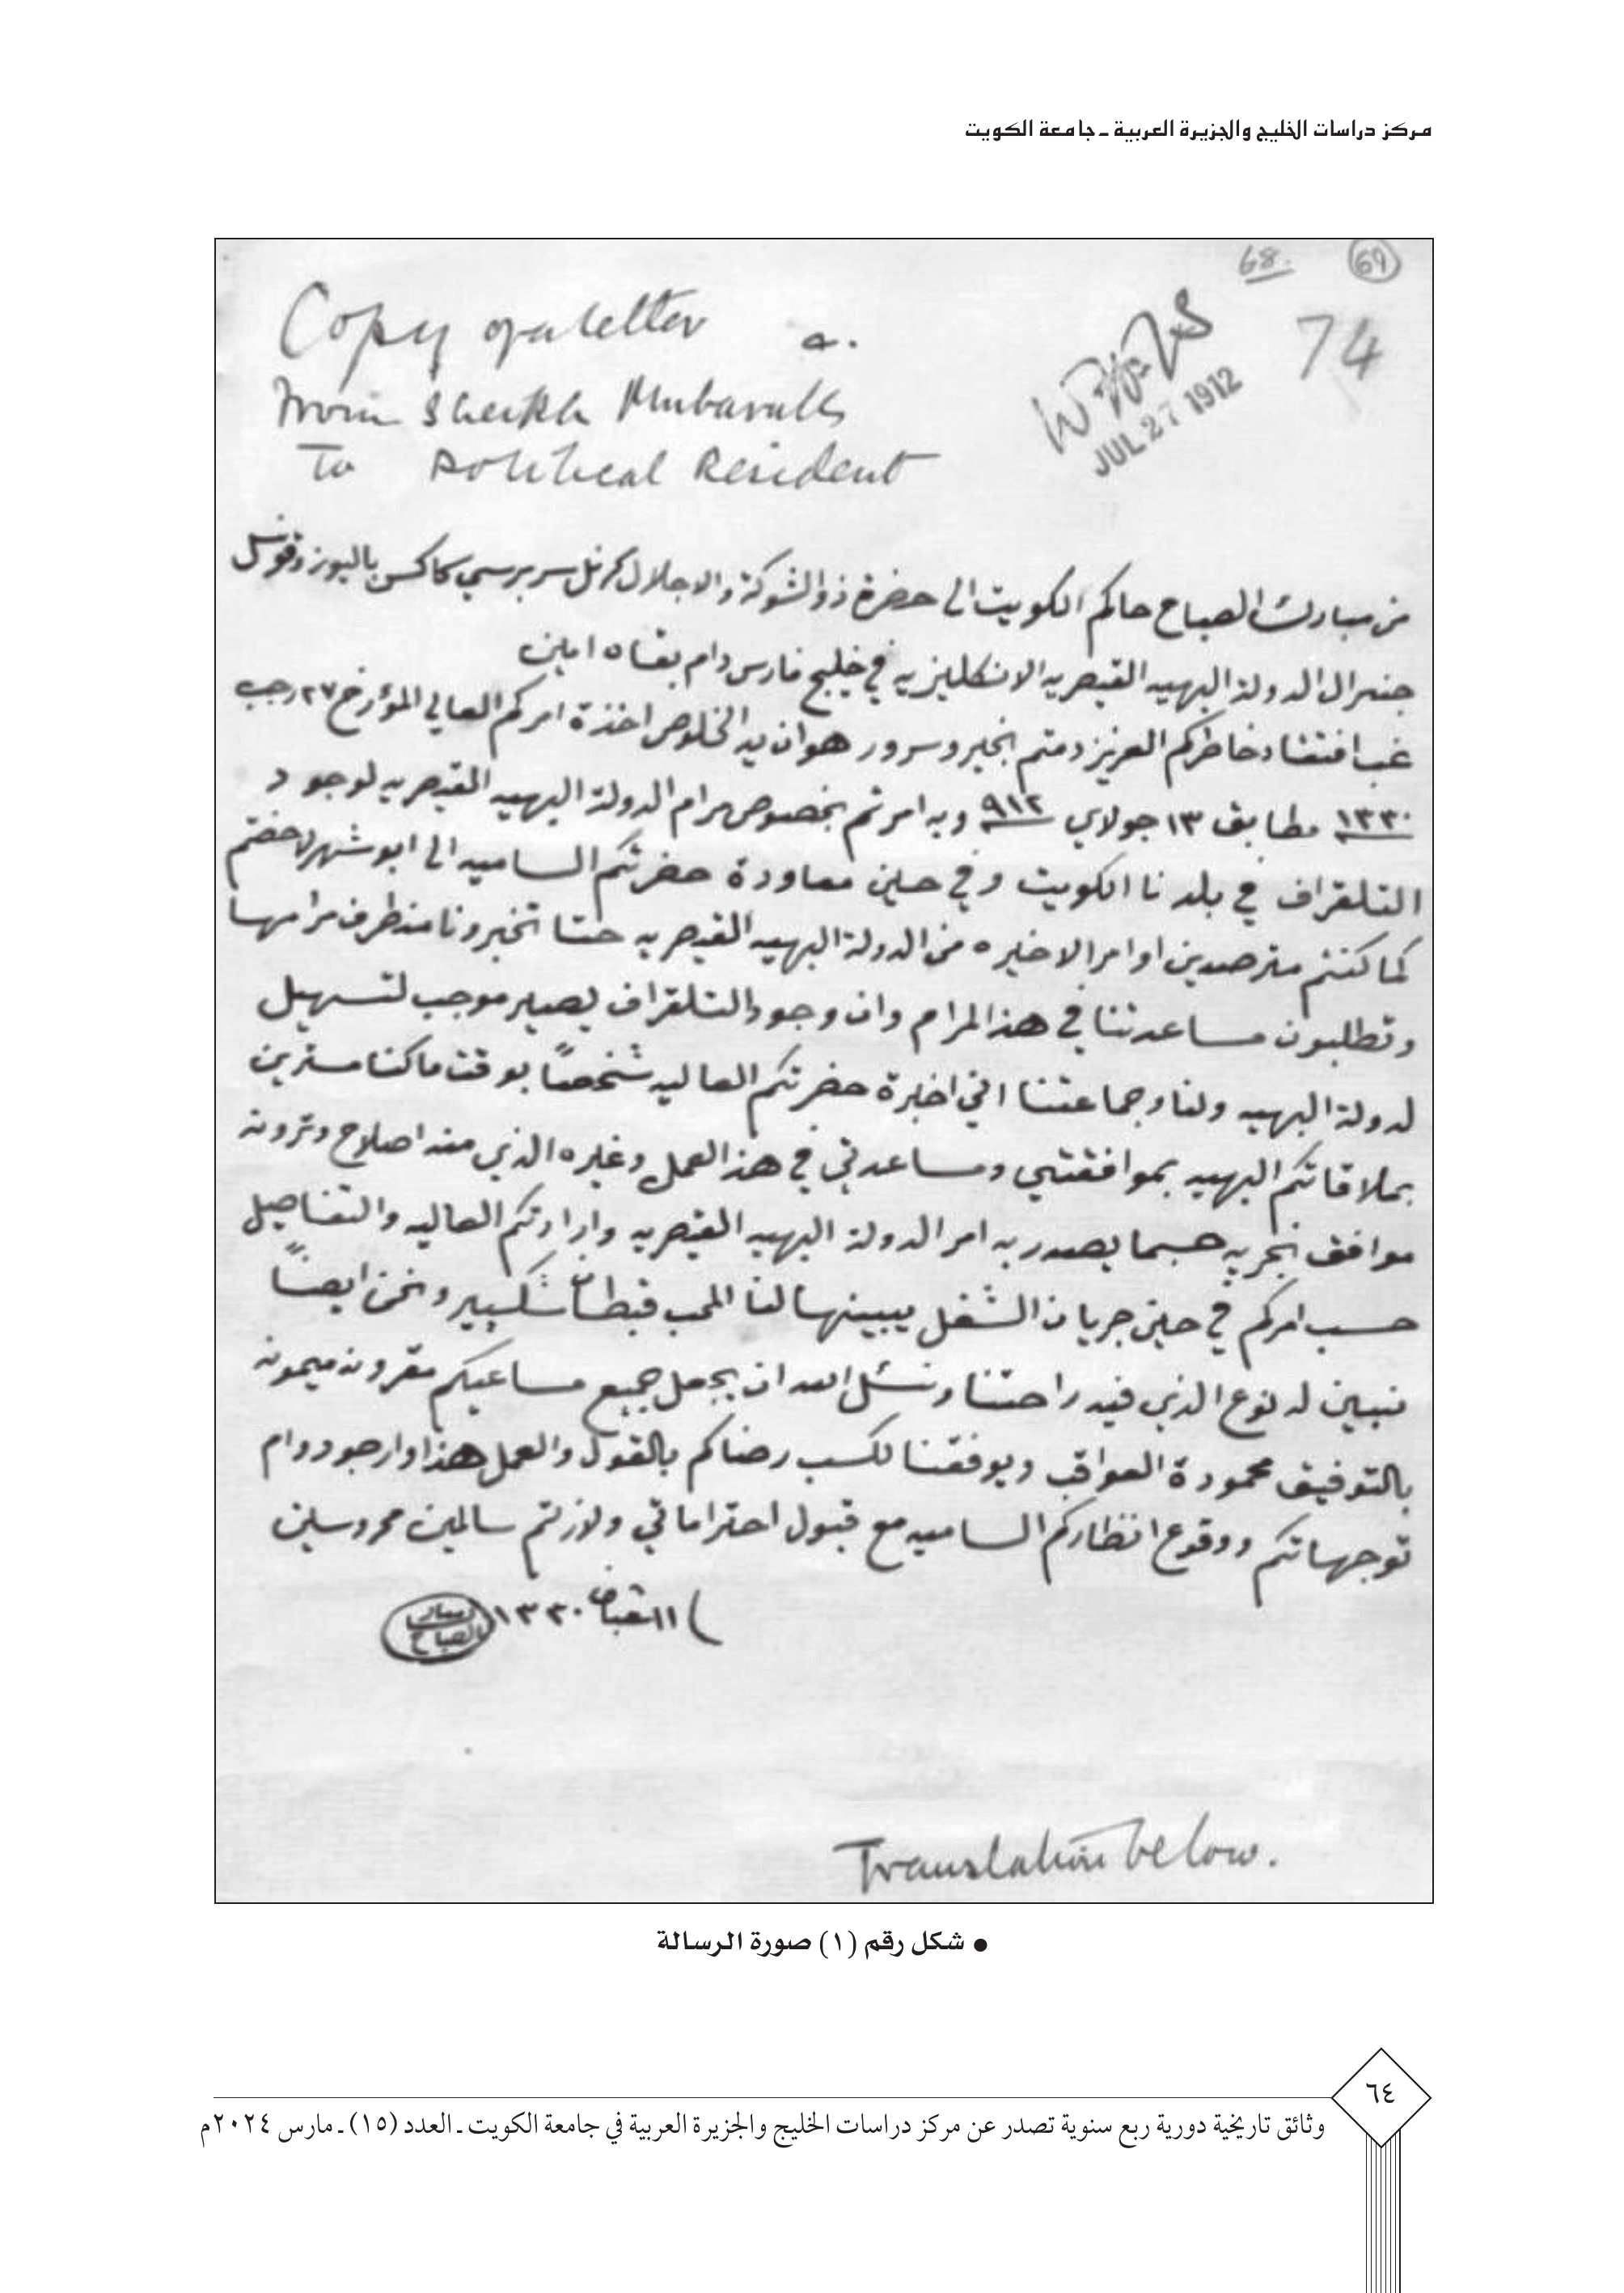 مركز دراسات الخليج والجزيرة العربية ـ جامعة الكويت
68. 69
Copy of a letter a.
74
from Sheikh Mubarak
JUL 27 1912
To Political Resident
من مبارك الصباح حاكم الكويت الى حضرة ذو الشوكة والاجلال كرنل سر برسي كاكس باليوز وقونسل
جنرال الدولة البهيه القيصريه الانكليزيه في خليج فارس دام بقاه امين
غب افتقاد خاطركم العزيز دمتم بخير وسرور هو ان يد الخلوص اخذة امركم العالي المؤرخ ٢٧ رجب
١٣٣٠ مطابق ١٣ جولاي ٩١٢ وبه امرتم بخصوص مرام الدولة البهيه القيصريه لوجود
التلقراف في بلدنا الكويت وفي حين معاودة حضرتكم الساميه الى ابوشهر لاحضتم
كما كنتم مترصدين اوامر الاخيره من الدولة البهيه القيصريه حتا تخبرونا منطرف مرامها
وتطلبون مساعدتنا في هذالمرام وان وجود التلقراف يصير موجب لتسهيل
لدولة البهيه ولنا وجماعتنا اني اخبرة حضرتكم العاليه شخصاً بوقت ما كنا مسترين
بملاقاتكم البهيه بموافقتي ومساعدتي في هذالعمل وغيره الذي منه اصلاح وترونه
موافق نجريه حسبما يصدر به امر الدولة البهيه القيصريه وارادتكم العاليه والتفاصيل
حسب امركم في حين جريان الشغل يبينها لنا المحب قبطان شكسبير ونحن ايضاً
نبين له نوع الذي فيه راحتنا ونسئل الله ان يجعل جميع مساعيكم مقرونه ميمونه
بالتوفيق محمودة العواقب ويوفقنا لكسب رضاكم بالقول والعمل هذا وارجو دوام
توجهاتكم ووقوع انظاركم الساميه مع قبول احتراماتي ولازلتم سالمين محروسين
١١ شعبان ١٣٣٠ مبارك الصباح
Translation below.
● شكل رقم (١) صورة الرسالة
٦٤
وثائق تاريخية دورية ربع سنوية تصدر عن مركز دراسات الخليج والجزيرة العربية في جامعة الكويت ـ العدد (١٥) ـ مارس ٢٠٢٤م